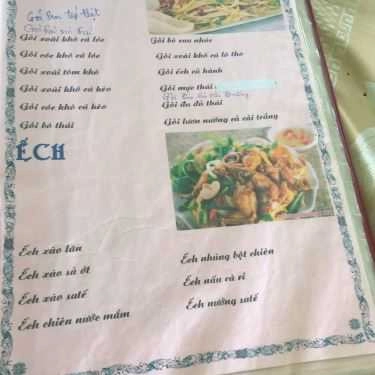 Gỏi bò bau nhúc
Gỏi xoài khô cá lóc
Gỏi cóc khô cá lóc
Gỏi xoài khô cá lò tho
Gỏi xoài tôm khô
Gỏi ếch củ hành
Gỏi xoài khô cá kèo
Gỏi mực thái
Gỏi cóc khô cá kèo
Gỏi đu đủ thái
Gỏi bò thái
Gỏi lươn nướng củ cải trắng
ẾCH
Ếch xào lăn
Ếch nhúng bột chiên
Ếch xào sả ớt
Ếch nấu cà ri
Ếch xào satế
Ếch nướng satế
Ếch chiên nước mắm